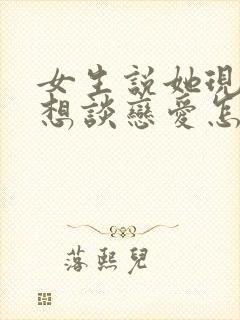 女生說她現
想談戀愛怎
落熙兒